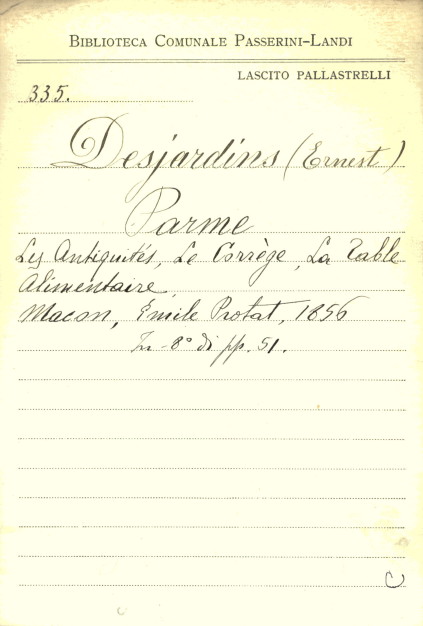 BIBLIOTECA COMUNALE PASSERINI-LANDI
LASCITO PALLASTRELLI
335.
Desjardins (Ernest)
Parme
Les Antiquités, Le Corrège, La Table
Alimentaire,
Macon, Emile Protat, 1856
In-8° di pp. 51.
C